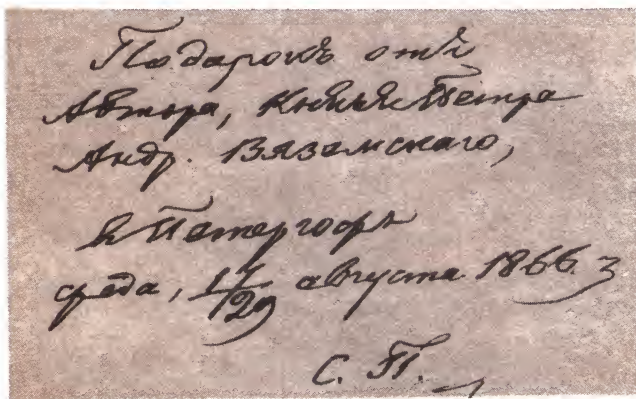 Подарокъ отъ
Автора, Князя Петра
Андр. Вяземскаго,
въ Петергофѣ
среда, 17/29 августа 1866.
С. П.